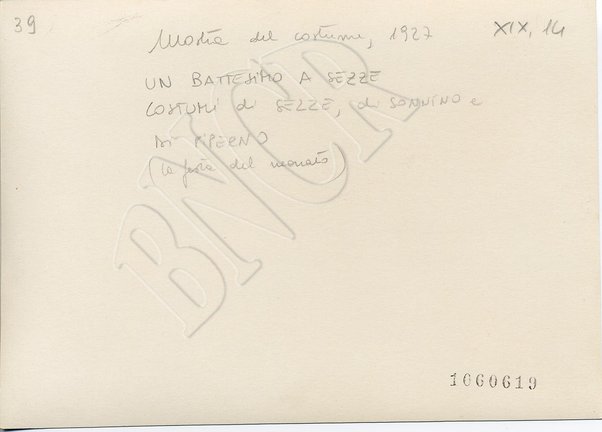 39
Mostra del costume, 1927
XIX, 14
UN BATTESIMO A SEZZE
COSTUMI di SEZZE, di SONNINO e
DI PIPERNO
(la festa del neonato)
BNCR
1060619